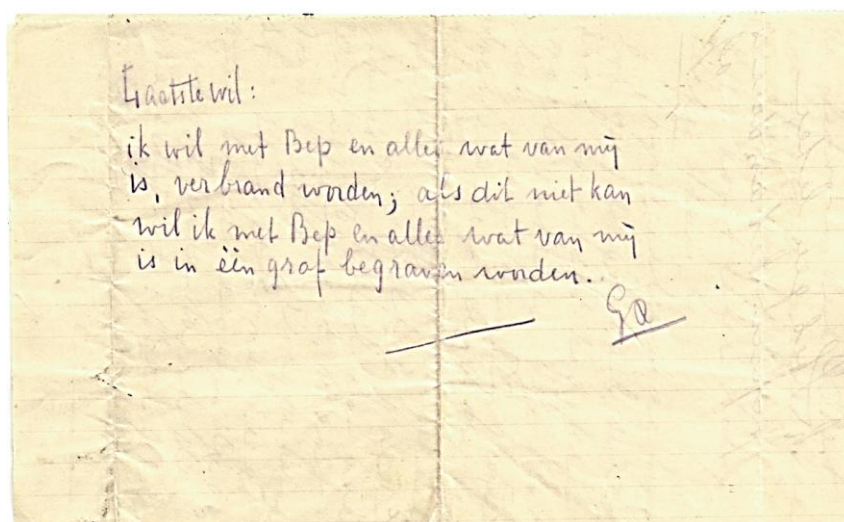 Laatste wil:
ik wil met Bep en alles wat van mij
is, verbrand worden; als dit niet kan
wil ik met Bep en alles wat van mij
is in één graf begraven worden.